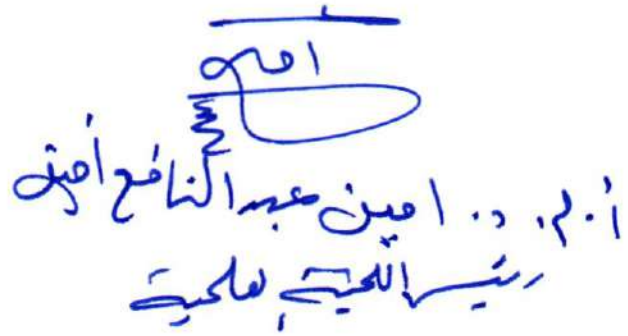 امين
أ.م.د. امين عبد النافع أمين
رئيس اللجنة العلمية